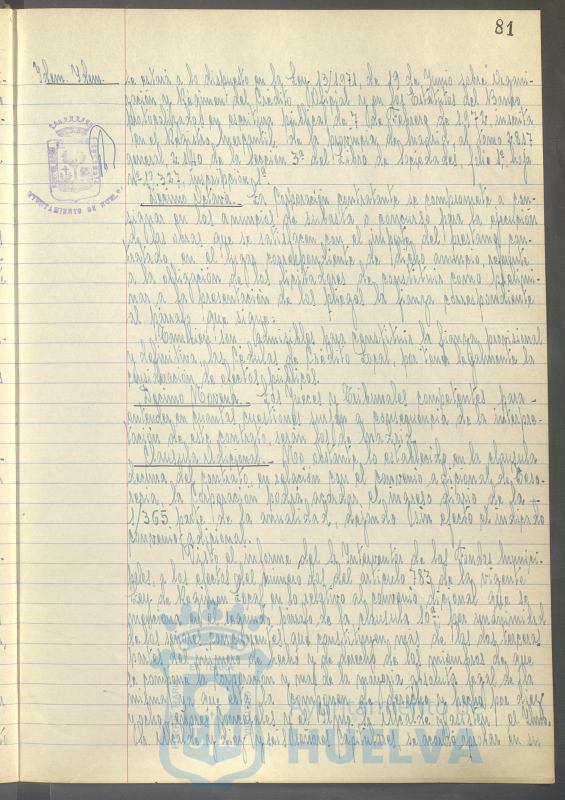 81
Idem. Idem.
se estará a lo dispuesto en la Ley 13/1971, de 19 de Junio sobre Organi-
zación y Régimen del Crédito Oficial y en los Estatutos del Banco
protocolizados en escritura pública de 7 de Febrero de 1972 inscrita
en el Registro Mercantil de la provincia de Madrid, al tomo 2817
general 2140 de la Sección 3ª del Libro de Sociedades, folio 1º hoja
nº 12.327, inscripción 1ª
AYUNTAMIENTO DE HUELVA
Décimo Octava.- La Corporación contratante se compromete a con-
signar en los anuncios de subasta o concurso para la ejecución
de las obras que se satisfacen con el importe del préstamo con-
tratado, en el lugar correspondiente de dicho anuncio, referente
a la obligación de los licitadores de constituir como prelimi-
nar a la presentación de los pliegos la fianza correspondiente
el párrafo que sigue:
También son admisibles para constituir la fianza provisional
y definitiva, las Cédulas de Crédito Local, por tener legalmente la
consideración de efectos públicos.
Décimo Novena.- Los Jueces y Tribunales competentes para
entender en cuantas cuestiones surjan a consecuencia de la interpre-
tación de este contrato, serán los de Madrid.
Cláusula Adicional.- No obstante lo establecido en la cláusula
décima del contrato, en relación con el convenio adicional de Teso-
rería, la Corporación podrá acordar el ingreso diario de la
1/365 parte de la anualidad, dejando sin efecto el indicado
convenio adicional.
Visto el informe del Sr. Interventor de los Fondos Munici-
pales, a los efectos del número dos del artículo 783 de la vigente
Ley de Régimen Local en lo relativo al convenio adicional que se
menciona en el segundo párrafo de la cláusula 10ª; por unanimidad
de los señores concurrentes que constituyen más de las dos terceras
partes del número de hecho y de derecho de los miembros de que
se compone la Corporación y más de la mayoría absoluta legal de la
misma, ya que ésta la componen de derecho y hecho por
señores Concejales y el Iltmo. Sr. Alcalde y asisten el Iltmo.
Sr. Alcalde y señores Capitulares, se acordó aprobar en su
HUELVA